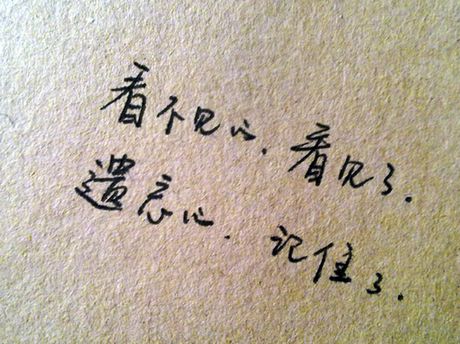 看不见心、看见了.
遗忘心. 记住了.